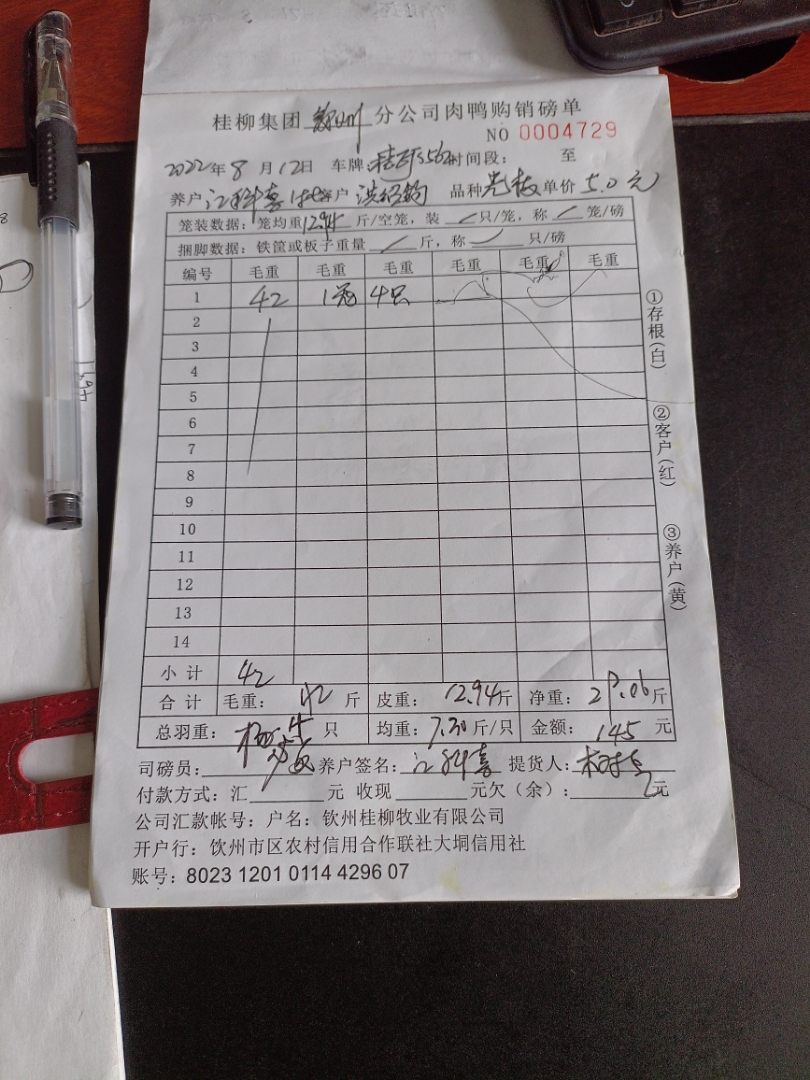 桂柳集团 钦州 分公司肉鸭购销磅单
NO 0004729
2022年8月12日 车牌: 时间段: 至
养户 江科喜 客户 洪绍钧 品种 单价 5.0元
笼装数据: 笼均重12.94斤/空笼, 装 / 只/笼, 称 / 笼/磅
捆脚数据: 铁筐或板子重量 / 斤, 称 / 只/磅
编号 毛重 毛重 毛重 毛重 毛重 毛重
1 42 1笼 4只
2
3
4
5
6
7
8
9
10
11
12
13
14
小计 42
合计 毛重: 42斤 皮重: 12.94斤 净重: 29.06斤
总羽重: 4只 均重: 7.30斤/只 金额: 145元
司磅员: 养户签名: 江科喜 提货人:
付款方式: 汇 元 收现 元欠(余): 元
公司汇款帐号: 户名: 钦州桂柳牧业有限公司
开户行: 饮州市区农村信用合作联社大垌信用社
账号: 8023 1201 0114 4296 07
①存根(白)
②客户(红)
③养户(黄)